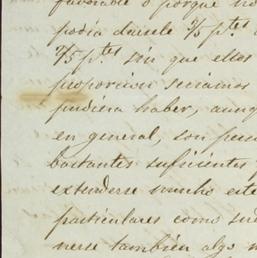 favorable o porque no
podía dársele 3/5 p.tes
3/5 p.tes sin que ellos
proporcion seriamos
pudiera haber, aunq
en general, son pers
bastantes suficientes
extenderse mucho este
particulares como su
nerse también algo